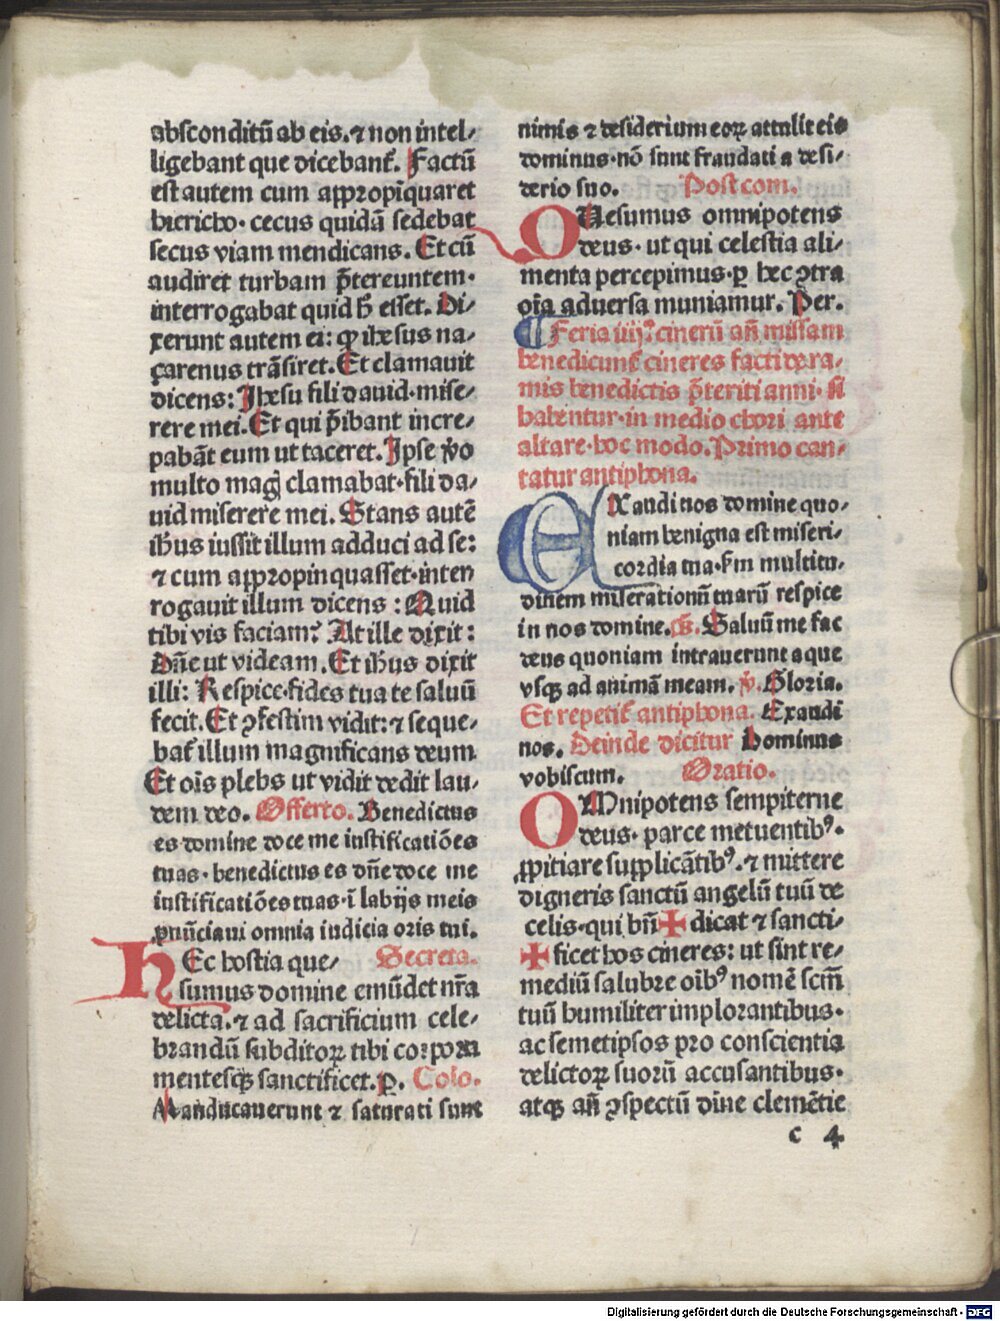 absconditū ab eis. ⁊ non intel⸗
ligebant que dicebant᷑. Factū
est autem cum appropīquaret
hiericho· cecus quidā sedebat
secus viam mendicans. Et cū
audiret turbam p̄tereuntem·
interrogabat quid h̄ esset. Di⸗
xerunt autem ei: ꝙ ihesus na⸗
çarenus trāsiret. Et clamauit
dicens: Jhesu fili dauid· mise⸗
rere mei. Et qui p̄ibant incre⸗
pabāt eum ut taceret. Jpse v̄o
multo magꝭ clamabat· fili da⸗
uid miserere mei. Stans autē
ih̄us iussit illum adduci ad se:
⁊ cum appropinquasset· inter⸗
rogauit illum dicens: Quid
tibi vis faciam? At ille dixit:
Dn̄e ut videam. Et ih̄us dixit
illi: Respice· fides tua te saluū
fecit. Et ꝯfestim vidit: ⁊ seque⸗
bat᷑ illum magnificans deum
Et oīs plebs ut vidit dedit lau⸗
dem deo. Offerto. Benedictus
es domine doce me iustificatiōes
tuas· benedictus es dn̄e doce me
iustificatiōes tuas· ī labijs meis
ꝓnūciaui omnia iudicia oris tui.
HEc hostia que⸗ Secreta.
sumus domine emūdet nr̄a
delicta. ⁊ ad sacrificium cele⸗
brandū subditoꝝ tibi corpora
mentesqꝫ sanctificet. P. Cōio.
Manducauerunt ⁊ saturati sunt
nimis ⁊ desiderium eoꝝ attulit eis
dominus· nō sunt fraudati a desi⸗
derio suo. Postcom.
QUesumus omnipotens
deus· ut qui celestia ali⸗
menta percepimus· ꝑ hec ꝯtra
oīa aduersa muniamur. Per.
¶ Feria iiij. cinerū an̄ missam
benedicunt᷑ cineres facti de ra⸗
mis benedictis p̄teriti anni· si
habentur· in medio chori ante
altare· hoc modo. Primo can⸗
tatur antiphona.
EXaudi nos domine quo⸗
niam benigna est miseri⸗
cordia tua· ẜm multitu⸗
dinem miserationū tuarū respice
in nos domine. p̄s. Saluū me fac
deus quoniam intrauerunt aque
vsqꝫ ad animā meam. v̄. Gloria.
Et repetit᷑ antiphona. Exaudi
nos. Deinde dicitur Dominus
vobiscum. Oratio.
OMnipotens sempiterne
deus· parce metuentibꝰ·
ꝓpitiare supplicātibꝰ· ⁊ mittere
digneris sanctū angelū tuū de
celis· qui bn̄✠dicat ⁊ sancti⸗
✠ficet hos cineres: ut sint re⸗
mediū salubre oībꝰ nomē scm̄
tuū humiliter implorantibus·
ac semetipsos pro conscientia
delictoꝝ suorū accusantibus·
atqꝫ an̄ ꝯspectū diuīe clemētie
c 4
Digitalisierung gefördert durch die Deutsche Forschungsgemeinschaft - DFG